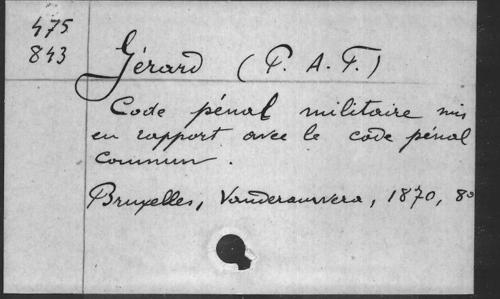 475
843
Gérard (P. A. F.)
Code pénal militaire mis
en rapport avec le code pénal
commun.
Bruxelles, Vanderauwera, 1870, 8o